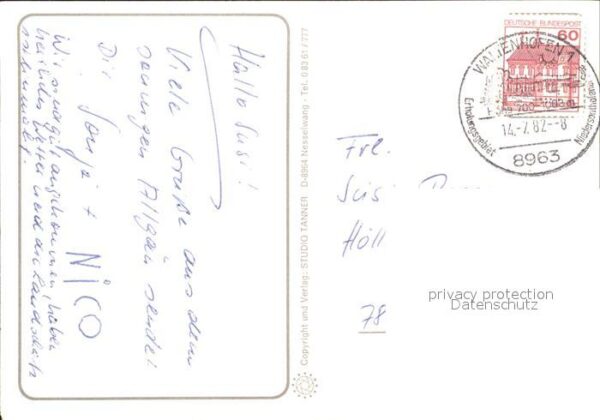 Hallo Susi!
Viele Grüße aus dem
sonnigen Allgäu sendet
Dir Sonja + NICO
Wir sind gut angekommen, haben
herrliches Wetter und die Landschaft
ist
Copyright und Verlag: STUDIO TANNER · D-8964 Nesselwang · Tel. 0 83 61 / 777
DEUTSCHE BUNDESPOST
60
WALTENHOFEN 1
Erholungsgebiet
Niedersonthofener
14.-7.82.-8
8963
Frl.
Susi
Höll
78
privacy protection
Datenschutz